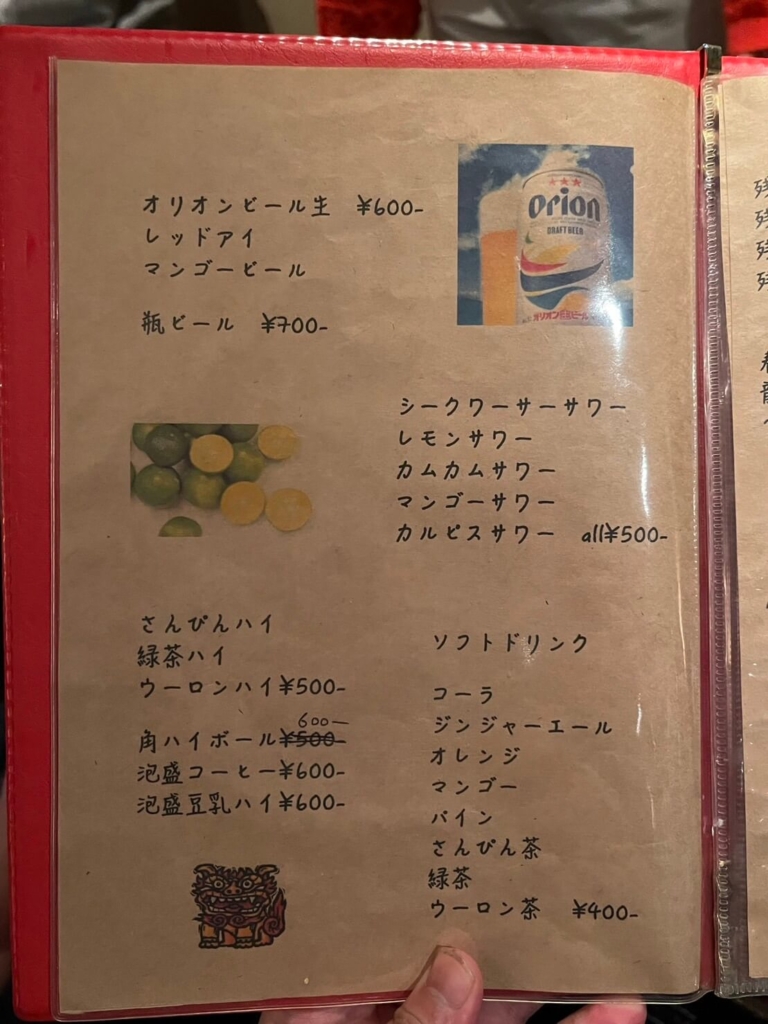 オリオンビール生 ¥600-
レッドアイ
マンゴービール
瓶ビール ¥700-
Orion
DRAFT BEER
シークワーサーサワー
レモンサワー
カムカムサワー
マンゴーサワー
カルピスサワー all¥500-
さんぴんハイ
緑茶ハイ
ウーロンハイ¥500-
600-
角ハイボール¥500-
泡盛コーヒー¥600-
泡盛豆乳ハイ¥600-
ソフトドリンク
コーラ
ジンジャーエール
オレンジ
マンゴー
パイン
さんぴん茶
緑茶
ウーロン茶 ¥400-